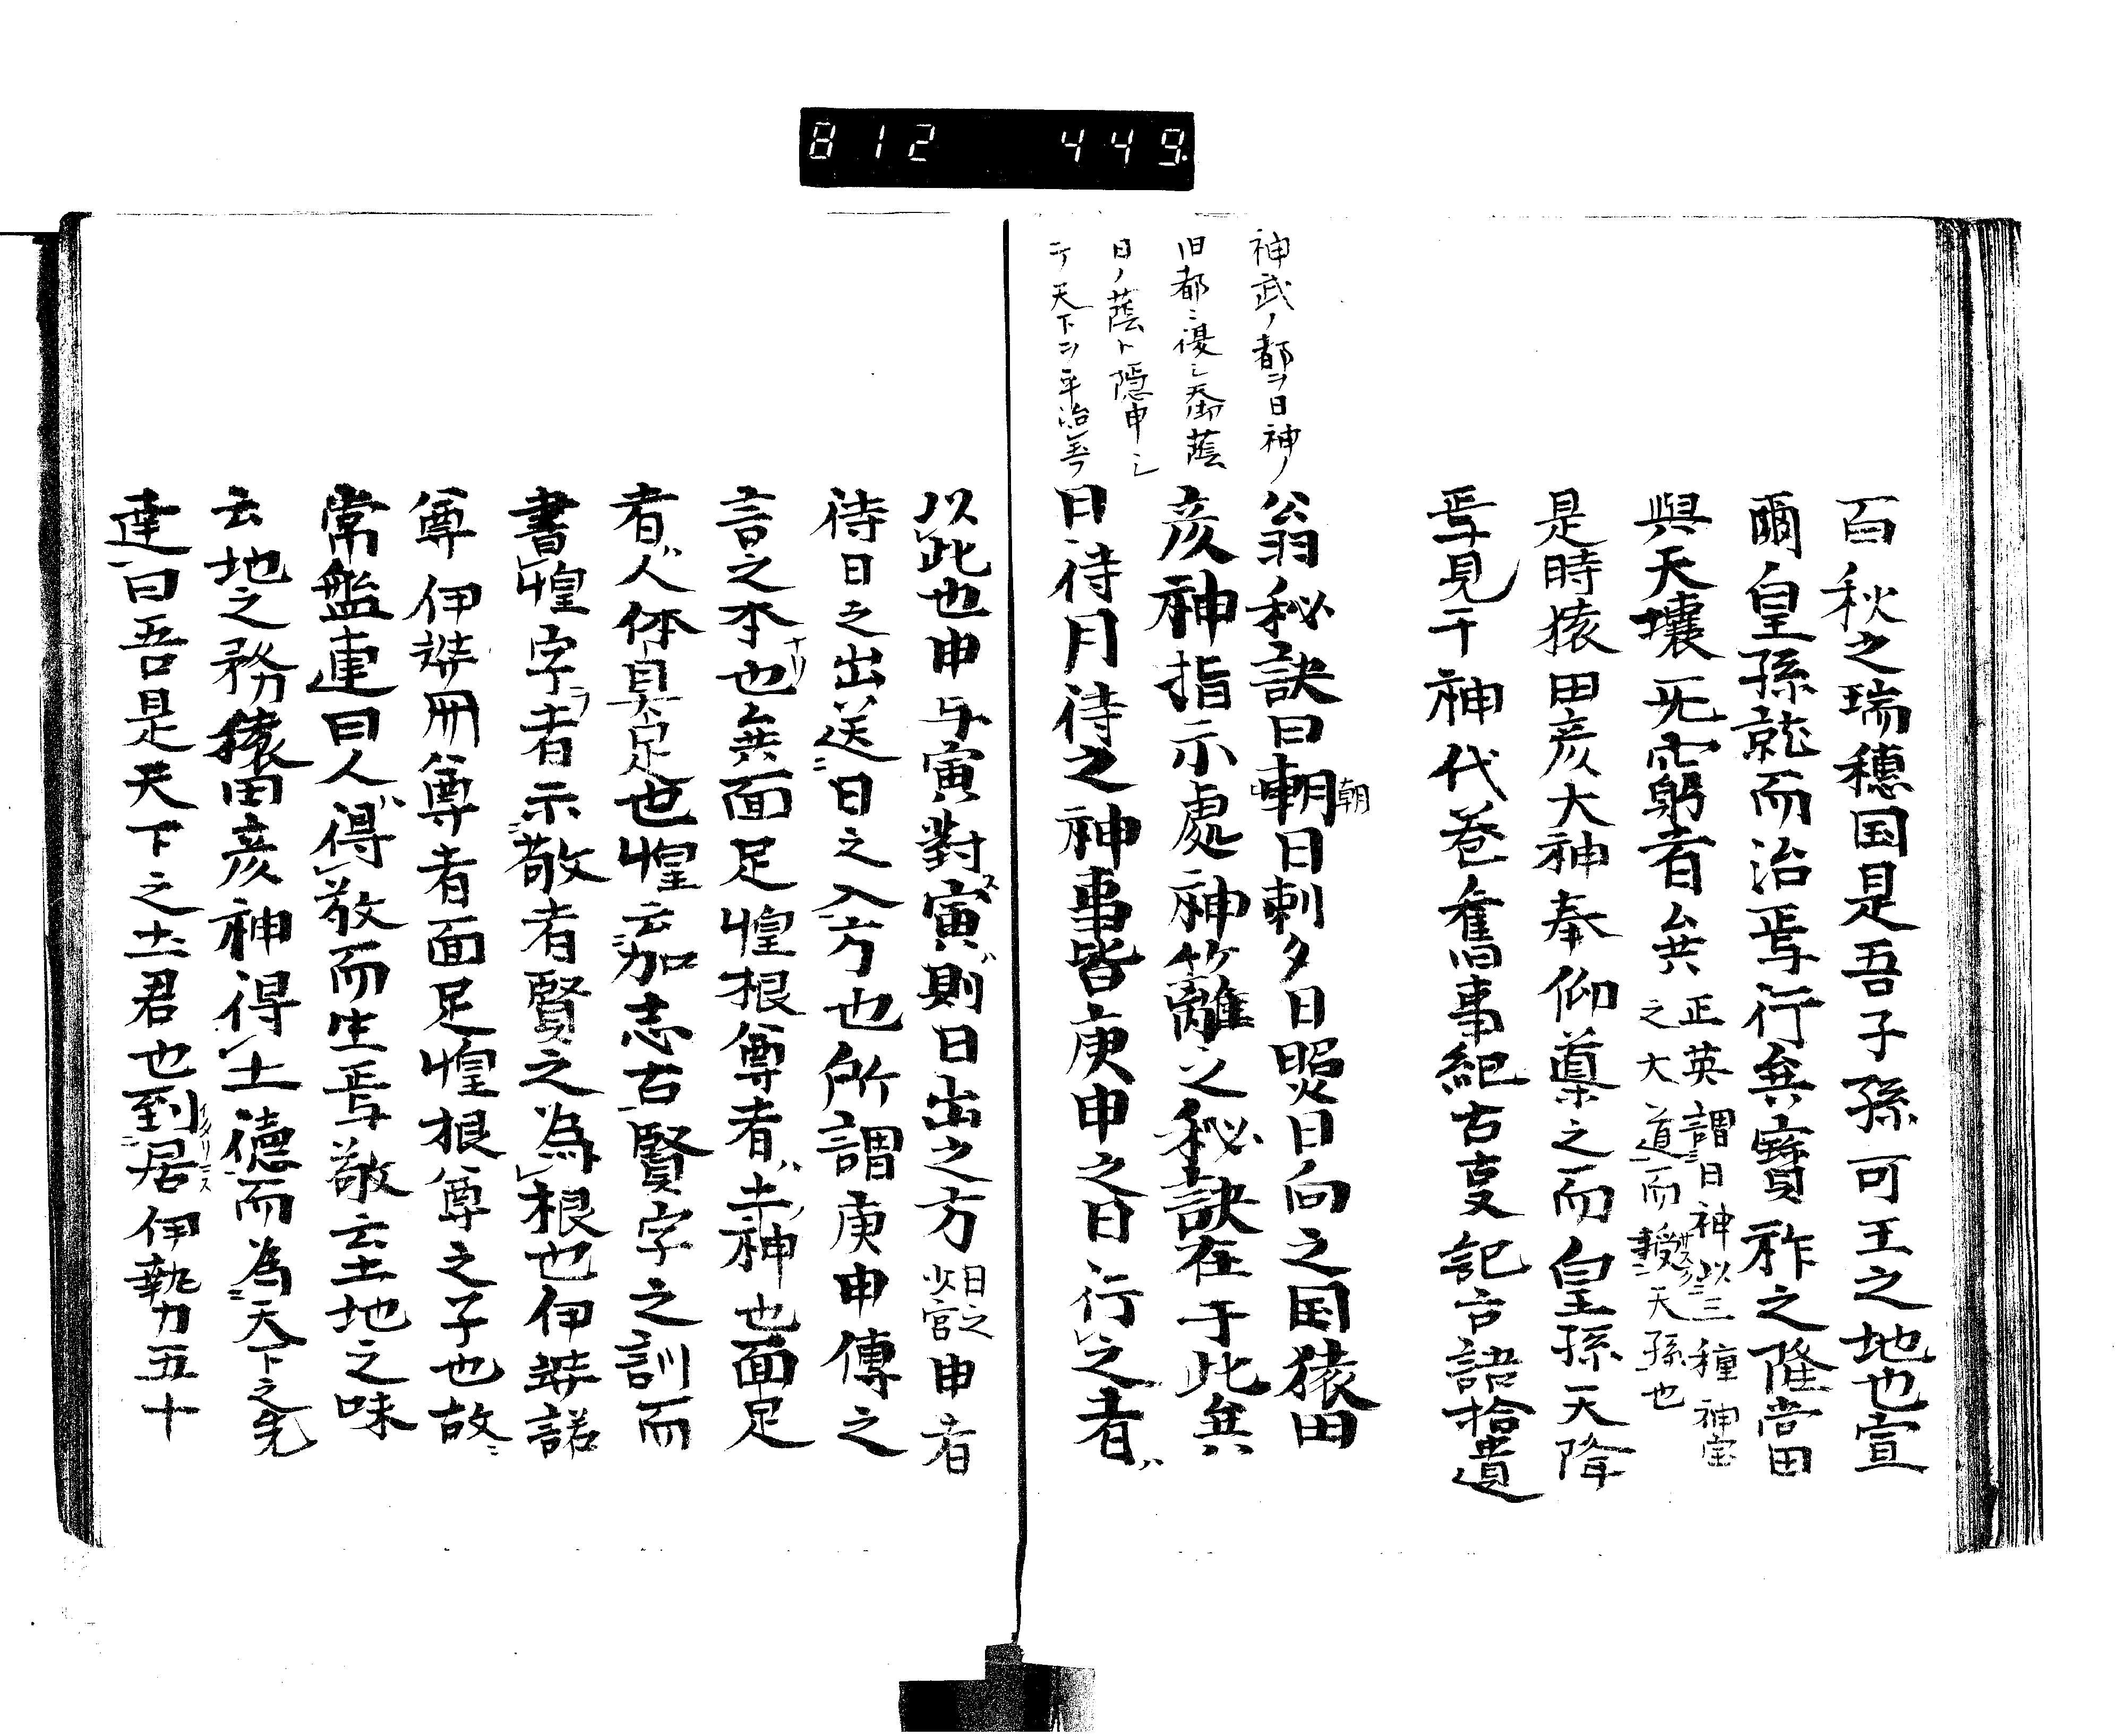 812 449
百秋之瑞穂国是吾子孫可王之地也宣
爾皇孫就而治焉行矣寶祚之隆當
與天壤无窮者矣
正英謂日神以三種神宝
之大道而授天孫也
是時猿田彦大神奉仰導之而皇孫天降
焉見于神代巻舊事紀古事記古語拾遺
神武ノ都ヲ日神ノ
旧都ニ復シ天御蔭
日ノ蔭ト隠申シ
テ天下ヲ平治
翁秘訣曰朝日刺夕日照日向之国猿田
朝
彦神指示處神籬之秘訣在于此矣
日待月待之神事皆庚申之日行之者ハ
以此也申与寅對ス寅ハ則日出之方
日之
少宮
申者
待日之出送日之入方也所謂庚申傳之
言之本也ナリ無面足惶根尊者ハ土神ノ也面足
者ハ人体具足也惶云加志古賢字之訓而
書惶字者示敬者賢之為根也伊弉諾
尊伊弉冊尊者面足惶根尊之子也故ニ
常盤連曰人ハ得敬而生焉敬云土地之味
云地之務猿田彦神得土德而為天下之先
達曰吾是天下之土君也到居伊勢五十